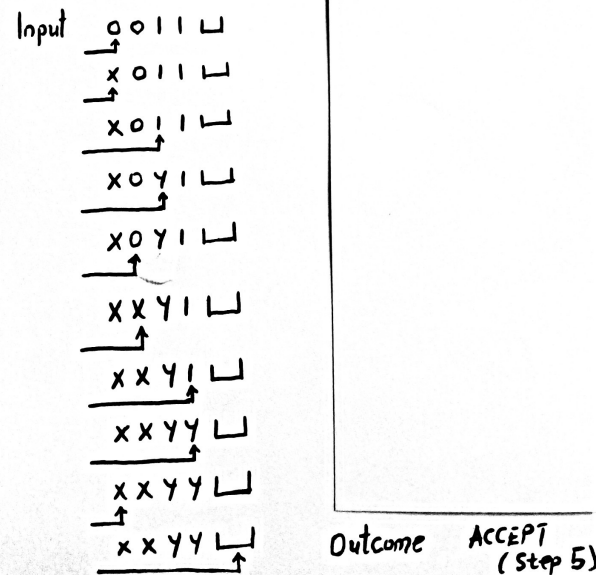 Input 0 0 1 1 ⊔
x 0 1 1 ⊔
x 0 1 1 ⊔
x 0 y 1 ⊔
x 0 y 1 ⊔
x x y 1 ⊔
x x y 1 ⊔
x x y y ⊔
x x y y ⊔
x x y y ⊔
Outcome ACCEPT
(Step 5)